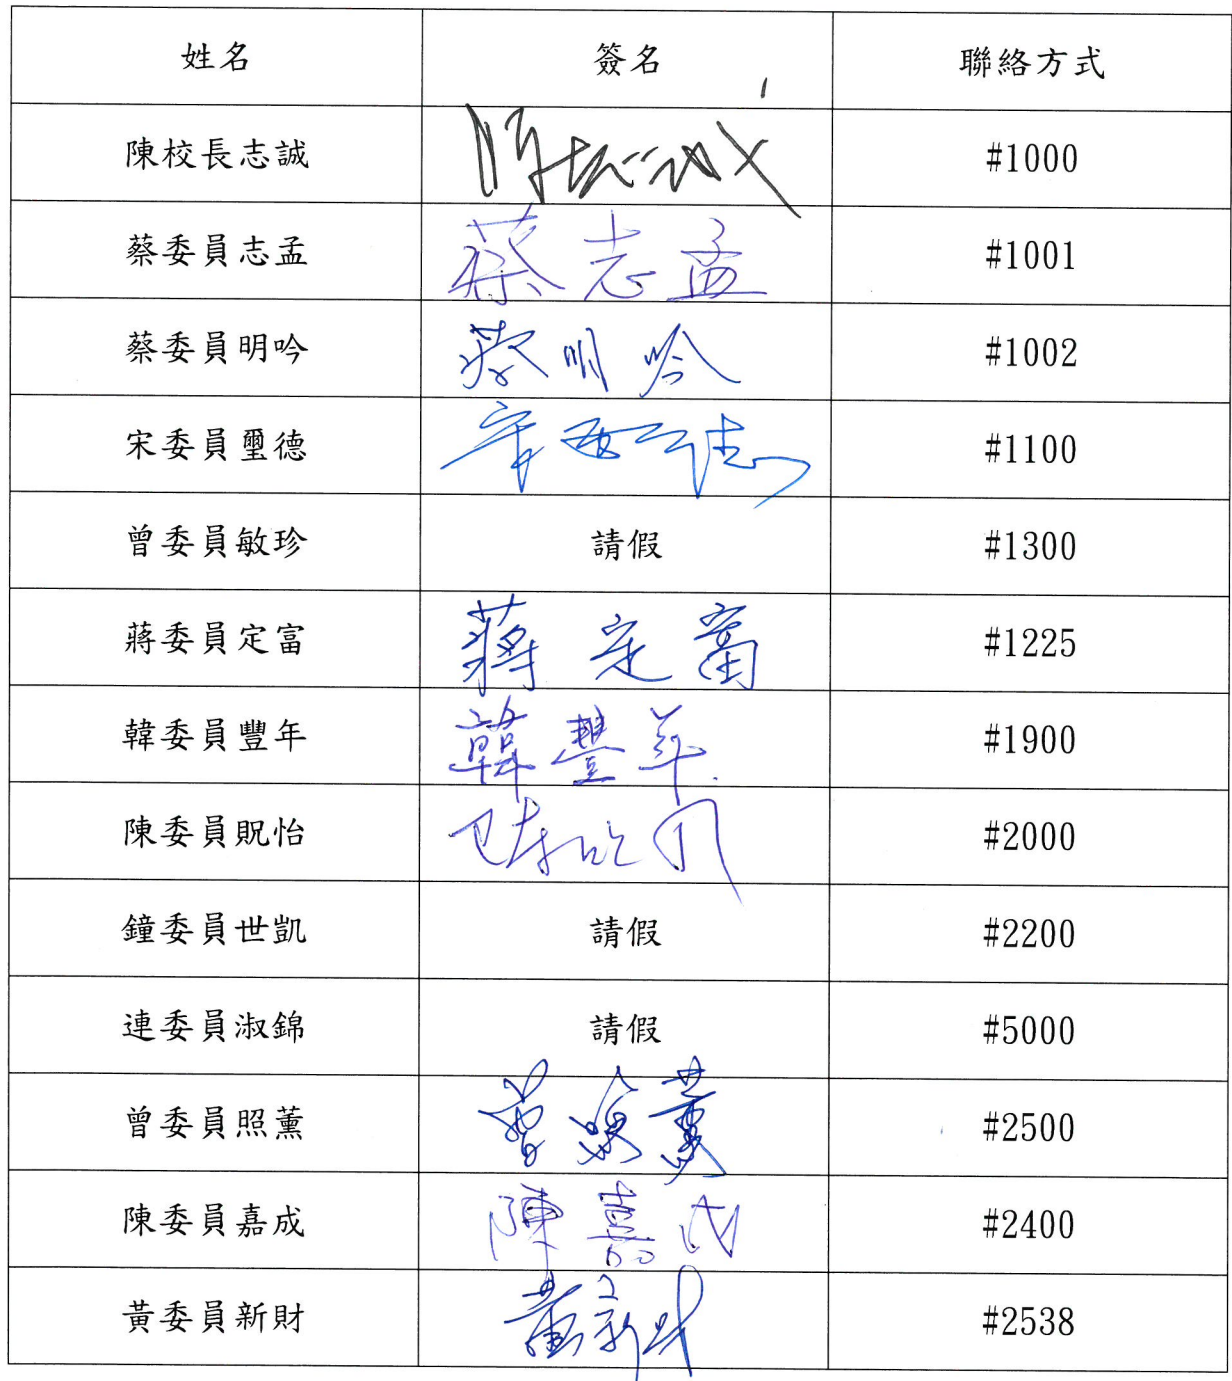 姓名 簽名 聯絡方式
陳校長志誠 陳志誠 #1000
蔡委員志孟 蔡志孟 #1001
蔡委員明吟 蔡明吟 #1002
宋委員璽德 宋璽德 #1100
曾委員敏珍 請假 #1300
蔣委員定富 蔣定富 #1225
韓委員豐年 韓豐年 #1900
陳委員貺怡 #2000
鐘委員世凱 請假 #2200
連委員淑錦 請假 #5000
曾委員照薰 曾照薰 #2500
陳委員嘉成 陳嘉成 #2400
黃委員新財 黃新財 #2538